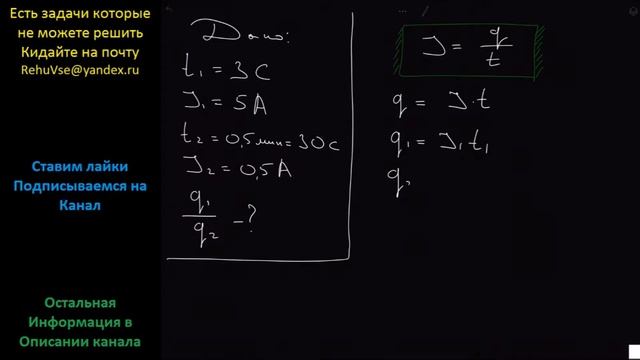 Есть задачи которые
не можете решить
Кидайте на почту
RehuVse@yandex.ru
Ставим лайки
Подписываемся на
Канал
Остальная
Информация в
Описании канала
Дано:
t₁ = 3 С
J₁ = 5 А
t₂ = 0,5 мин = 30 с
J₂ = 0,5 А
q₁/q₂ - ?
J = q/t
q = J · t
q₁ = J₁ t₁
q